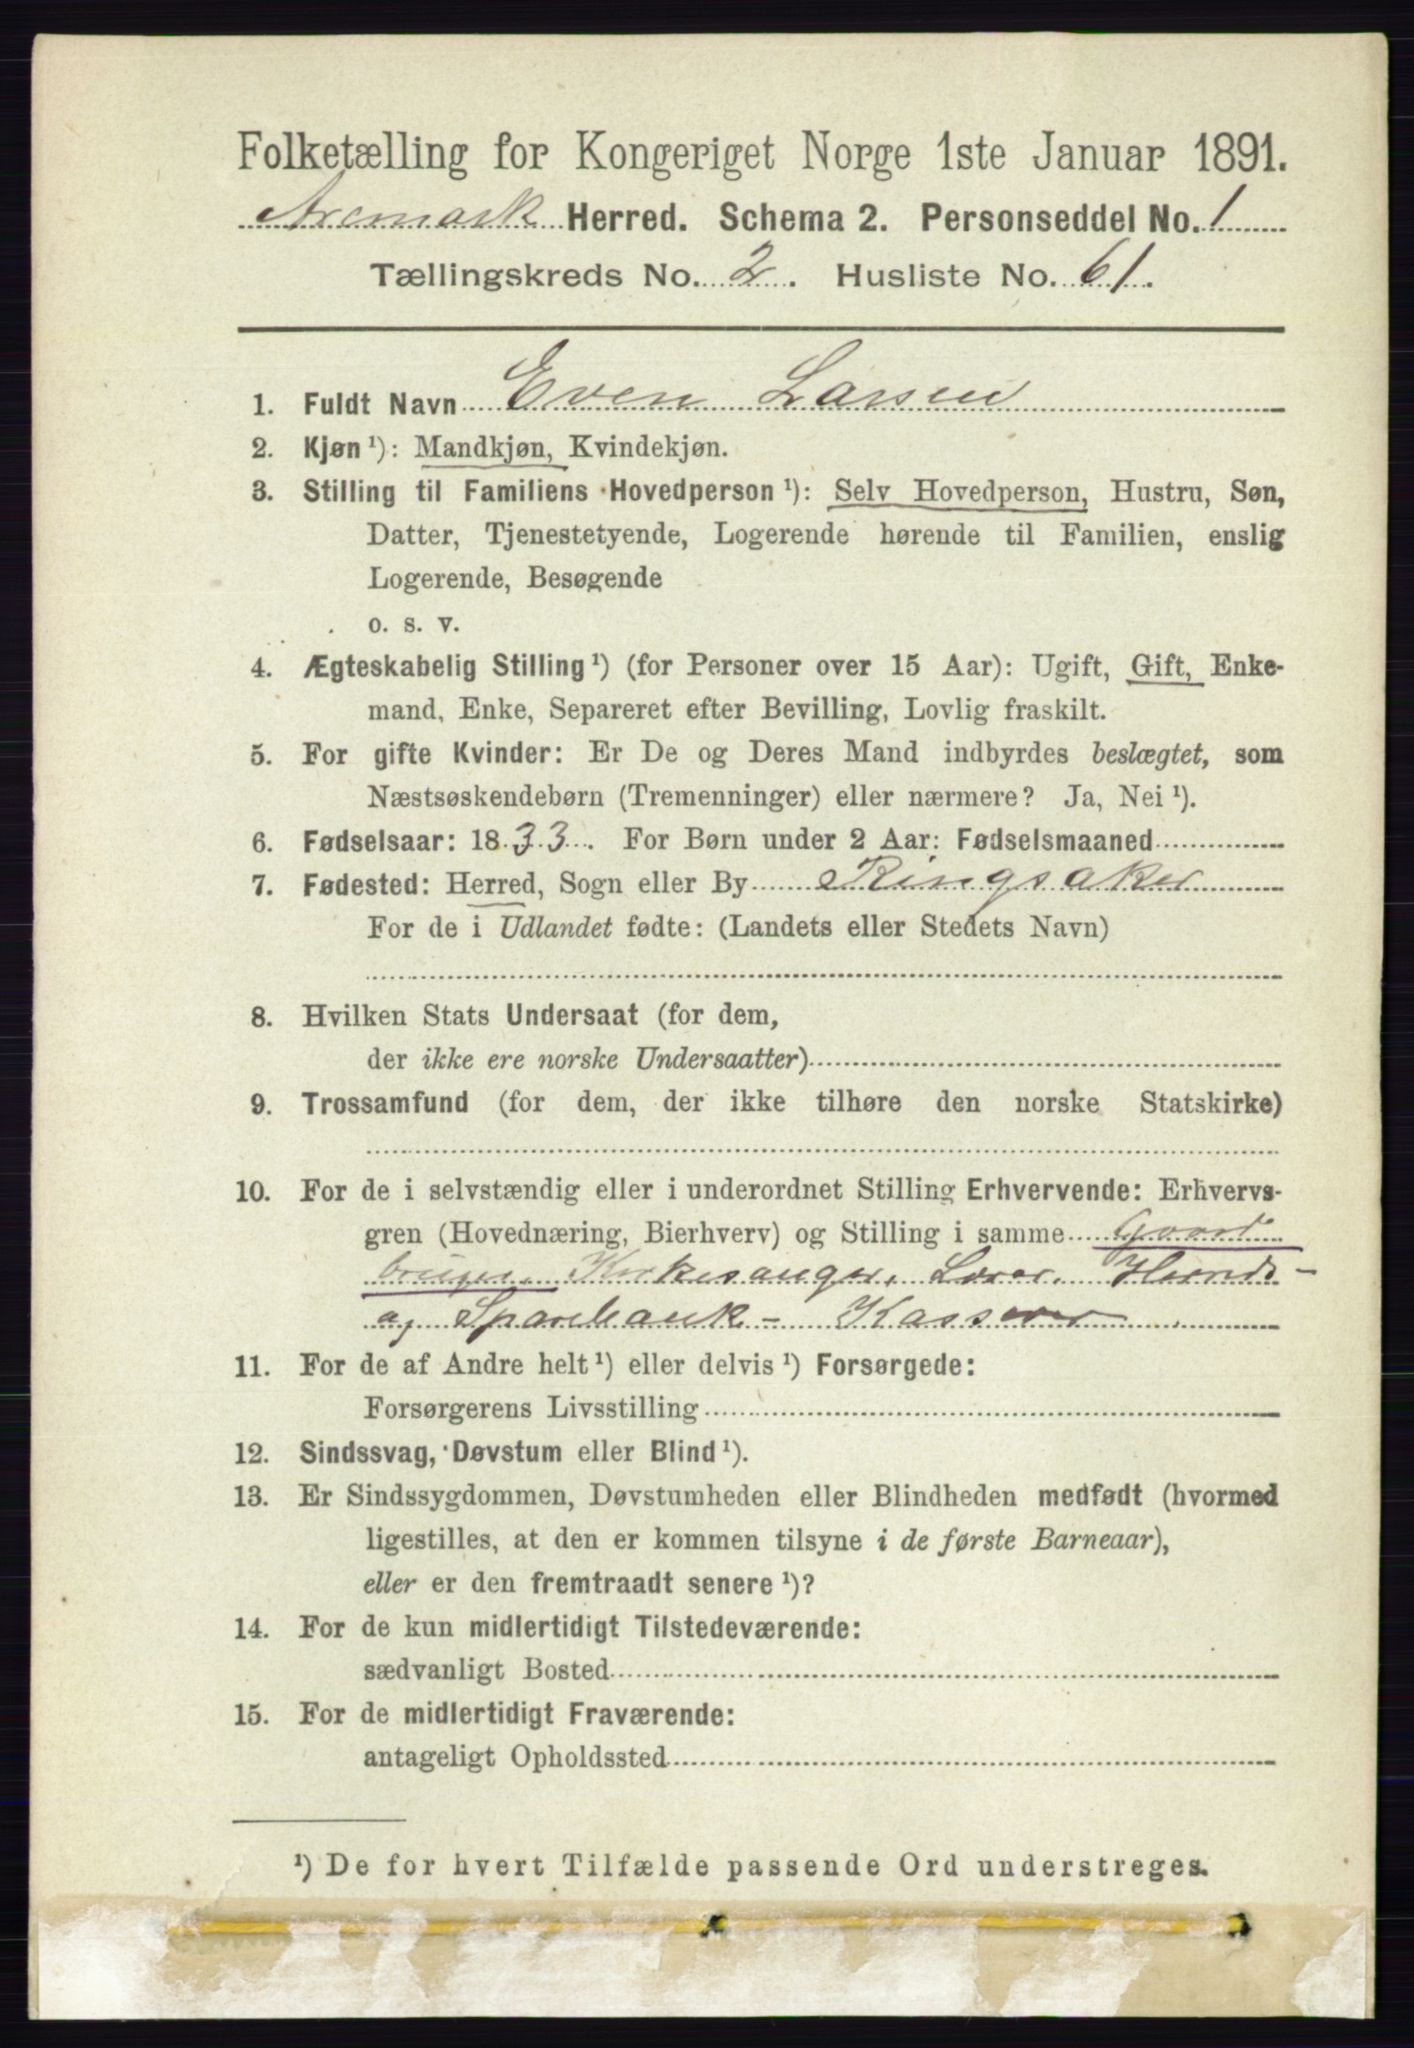 Folketælling for Kongeriget Norge 1ste Januar 1891.
Aremark Herred. Schema 2. Personseddel No. 1
Tællingskreds No. 2. Husliste No. 61.
1. Fuldt Navn Even Larsen
2. Kjøn ¹): Mandkjøn, Kvindekjøn.
3. Stilling til Familiens Hovedperson ¹): Selv Hovedperson, Hustru, Søn,
Datter, Tjenestetyende, Logerende hørende til Familien, enslig
Logerende, Besøgende
o. s. v.
4. Ægteskabelig Stilling ¹) (for Personer over 15 Aar): Ugift, Gift, Enke-
mand, Enke, Separeret efter Bevilling, Lovlig fraskilt.
5. For gifte Kvinder: Er De og Deres Mand indbyrdes beslægtet, som
Næstsøskendebørn (Tremenninger) eller nærmere? Ja, Nei ¹).
6. Fødselsaar: 1833. For Børn under 2 Aar: Fødselsmaaned
7. Fødested: Herred, Sogn eller By Ringsaker
For de i Udlandet fødte: (Landets eller Stedets Navn)
8. Hvilken Stats Undersaat (for dem,
der ikke ere norske Undersaatter)
9. Trossamfund (for dem, der ikke tilhøre den norske Statskirke)
10. For de i selvstændig eller i underordnet Stilling Erhvervende: Erhvervs-
gren (Hovednæring, Bierhverv) og Stilling i samme Gaard
bruger, Kirkesanger, Lærer, Herreds-
og Sparebank- Kasserer
11. For de af Andre helt ¹) eller delvis ¹) Forsørgede:
Forsørgerens Livsstilling
12. Sindssvag, Døvstum eller Blind ¹).
13. Er Sindssygdommen, Døvstumheden eller Blindheden medfødt (hvormed
ligestilles, at den er kommen tilsyne i de første Barneaar),
eller er den fremtraadt senere ¹)?
14. For de kun midlertidigt Tilstedeværende:
sædvanligt Bosted
15. For de midlertidigt Fraværende:
antageligt Opholdssted
¹) De for hvert Tilfælde passende Ord understreges.